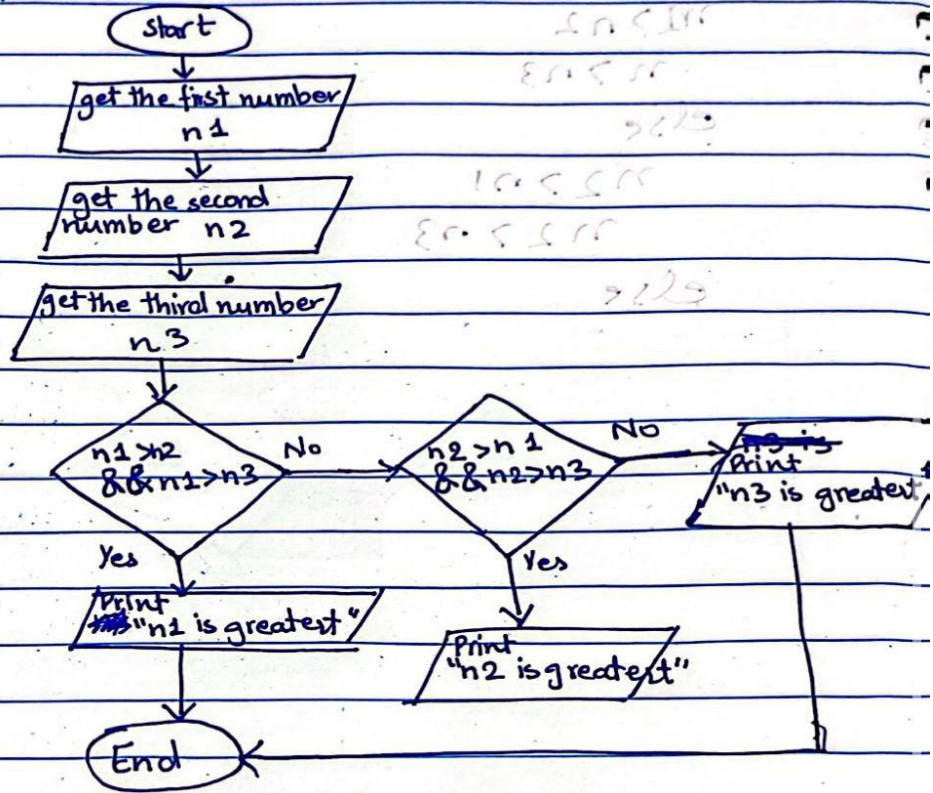 start
get the first number
n1
get the second
number n2
get the third number
n3
n1>n2
&&n1>n3
No
n2>n1
&&n2>n3
No
Print
"n3 is greatest
Yes
Print
"n1 is greatest"
Yes
Print
"n2 is greatest"
End